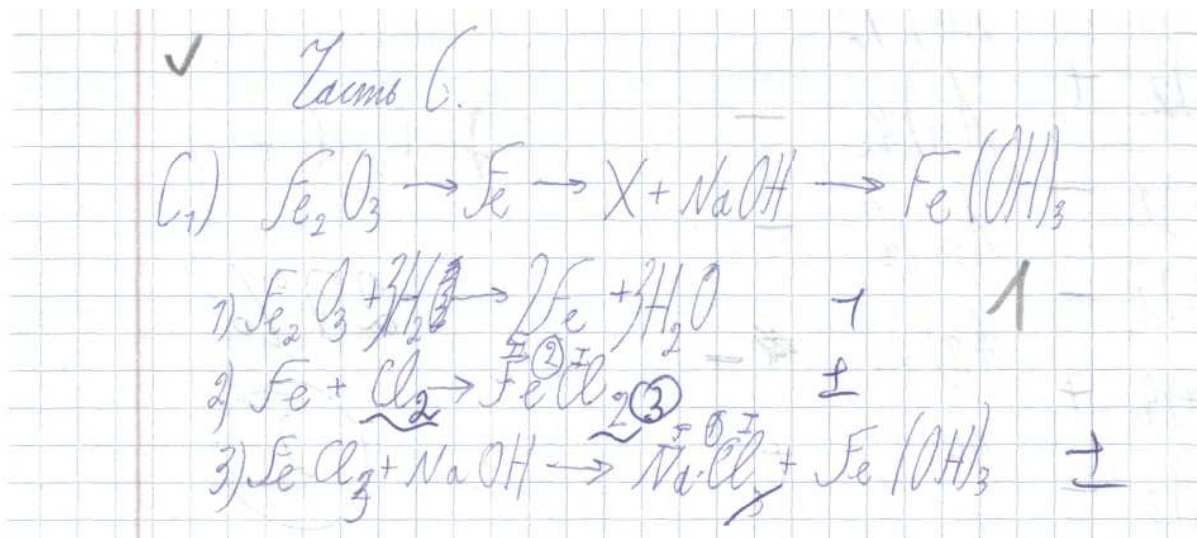 ✓ Часть С.
C₁) Fe₂O₃ → Fe → X + NaOH → Fe(OH)₃
1) Fe₂O₃ + 3H₂ → 2Fe + 3H₂O + 1
2) Fe + Cl₂ → FeCl₂ ③ ±
3) FeCl₃ + NaOH → NaCl + Fe(OH)₃ ±